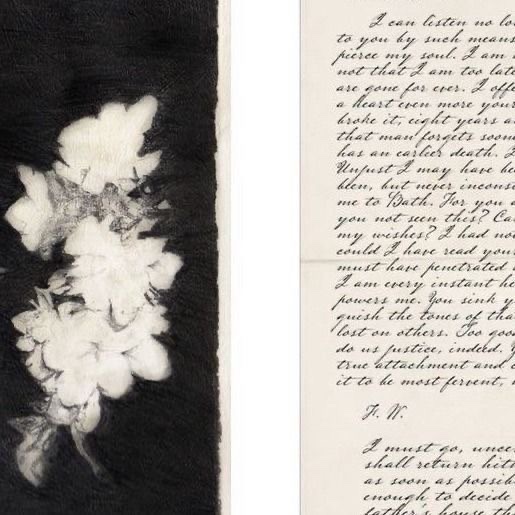 I can listen no lo
to you by such means
pierce my soul. I am
not that I am too late
are gone for ever. I offe
a heart even more your
broke it, eight years a
that man forgets soon
has an earlier death. I
Unjust I may have be
been, but never inconsi
me to Bath. For you a
you not seen this? Ca
my wishes? I had not
could I have read your
must have penetrated
I am every instant he
powers me. You sink y
guish the tones of tha
lost on others. Too goo
do us justice, indeed. Y
true attachment and c
it to be most fervent,
F. W.
I must go, unce
shall return hith
as soon as possib
enough to decide
father's house th